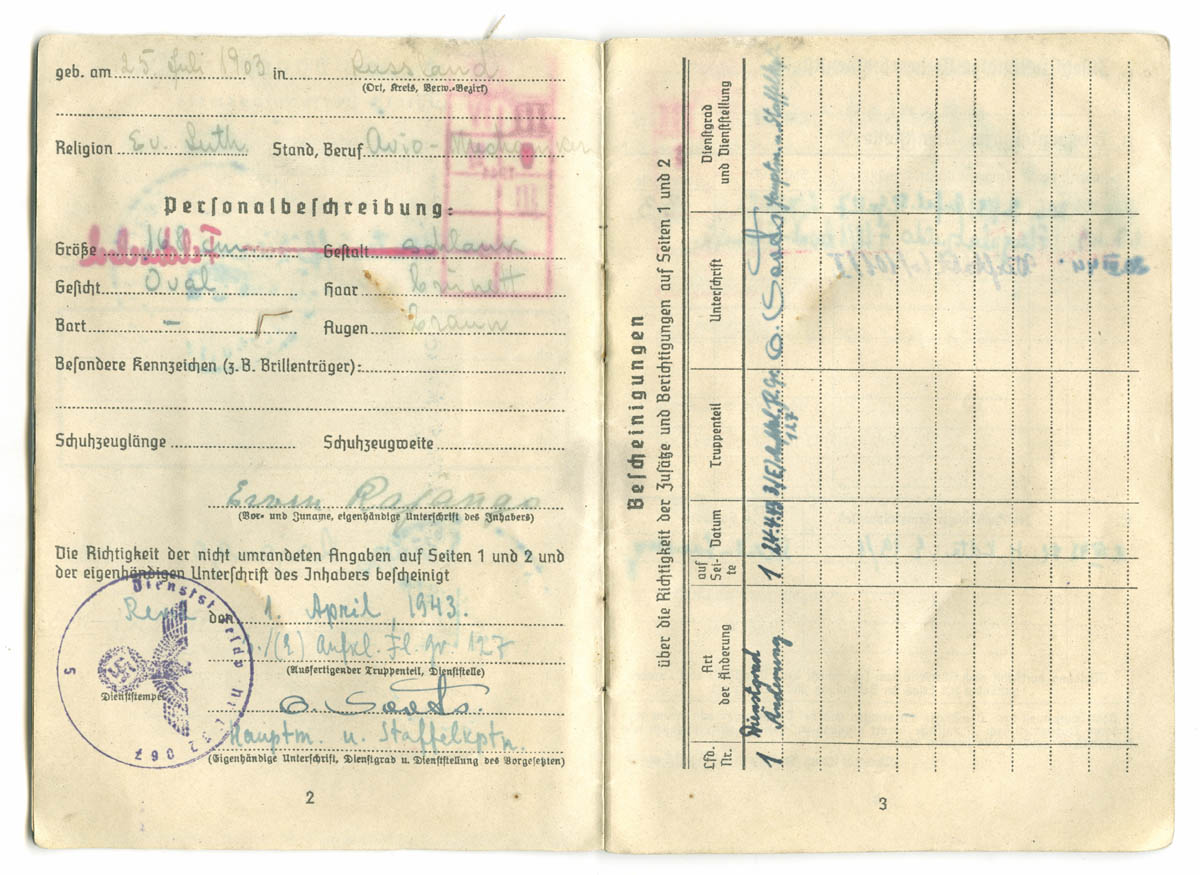 geb. am 25. Juli 1903 in Russland
(Ort, Kreis, Verw.-Bezirk)
Religion Ev. Luth. Stand, Beruf Avio-Mechaniker
Personalbeschreibung:
Größe 168 cm Gestalt schlank
Gesicht Oval Haar brünett
Bart - Augen braun
Besondere Kennzeichen (z. B. Brillenträger):
Schuhzeuglänge Schuhzeugweite
Erwin Rajango
(Vor- und Zuname, eigenhändige Unterschrift des Inhabers)
Die Richtigkeit der nicht umrandeten Angaben auf Seiten 1 und 2 und
der eigenhändigen Unterschrift des Inhabers bescheinigt
Reval den 1. April 1943.
/(E) Aufkl. Fl. Gr. 127
(Ausfertigender Truppenteil, Dienststelle)
Dienststempel
Hauptm. u. Staffelkptn.
(Eigenhändige Unterschrift, Dienstgrad u. Dienststellung des Vorgesetzten)
2
Bescheinigungen
über die Richtigkeit der Zusätze und Berichtigungen auf Seiten 1 und 2
Lfd. Nr.
Art der Änderung
auf Seite
Datum
Truppenteil
Unterschrift
Dienstgrad und Dienststellung
1 Dienstgrad Änderung 1 127
3